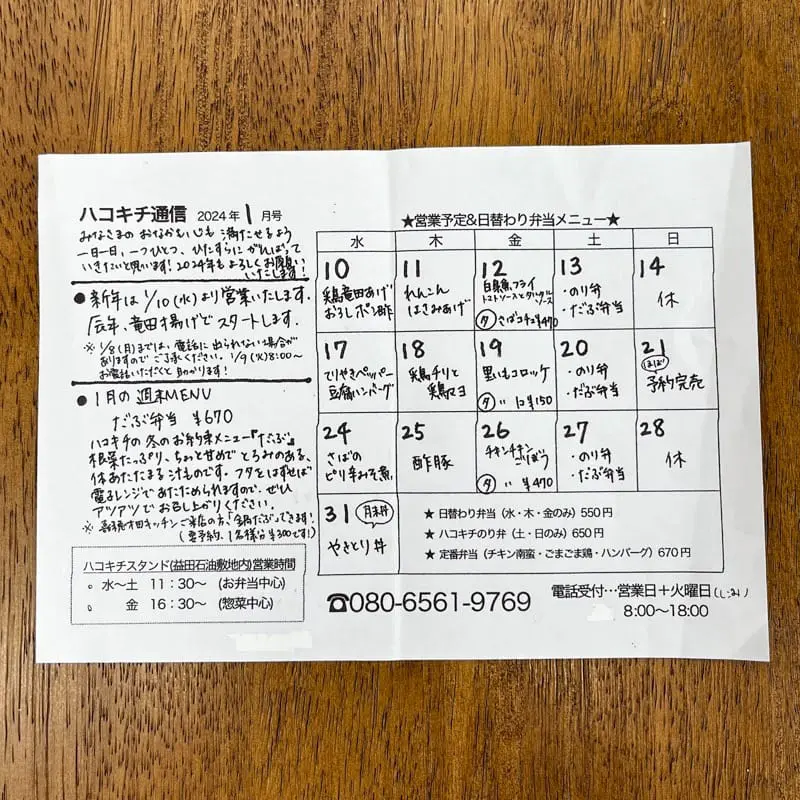 ハコキチ通信 2024年1月号
みなさまのおなかも心も満たせるよう
一日一日、一つひとつ、ひたすらにがんばって
いきたいと思います!2024年もよろしくお願い
いたします!
● 新年は 1/10(水)より営業いたします。
辰年、竜田揚げでスタートします。
※1/8(月)までは、電話に出られない場合が
ありますのでご了承ください。1/9(火)8:00~
お電話いただくと助かります!
● 1月の週末MENU
だぶ弁当 ¥670
ハコキチの冬のお約束メニュー『だぶ』
根菜たっぷり、ちょっと甘めでとろみのある、
体あたたまる汁ものです。フタをはずせば
電子レンジであたためられますので、ぜひ
アツアツでお召し上がりください。
キッチンご来店の方、「鍋だぶ」できます!
(要予約、1名様分¥300です!)
ハコキチスタンド(益田石油敷地内)営業時間
水~土 11:30~ (お弁当中心)
金 16:30~ (惣菜中心)
★営業予定&日替わり弁当メニュー★
水 木 金 土 日
10 鶏竜田あげ おろしポン酢
11 れんこん はさみあげ
12 白身魚フライ トマトソースとタルタルソース 夕 さばコチュ¥470
13 ・のり弁 ・だぶ弁当
14 休
17 てりやきペッパー 豆腐ハンバーグ
18 鶏チリと 鶏マヨ
19 里いもコロッケ 夕 〃 12 ¥150
20 ・のり弁 ・だぶ弁当
21 ほぼ 予約完売
24 さばの ピリ辛みそ煮
25 酢豚
26 チキンチキン ごぼう 夕 〃 ¥470
27 ・のり弁 ・だぶ弁当
28 休
31 月末丼 やきとり丼
★ 日替わり弁当(水・木・金のみ)550円
★ ハコキチのり弁(土・日のみ)650円
★ 定番弁当(チキン南蛮・ごまごま鶏・ハンバーグ)670円
☎080-6561-9769
電話受付…営業日+火曜日
8:00~18:00